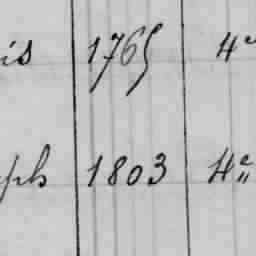 is 1765 4e
ph 1803 4e„